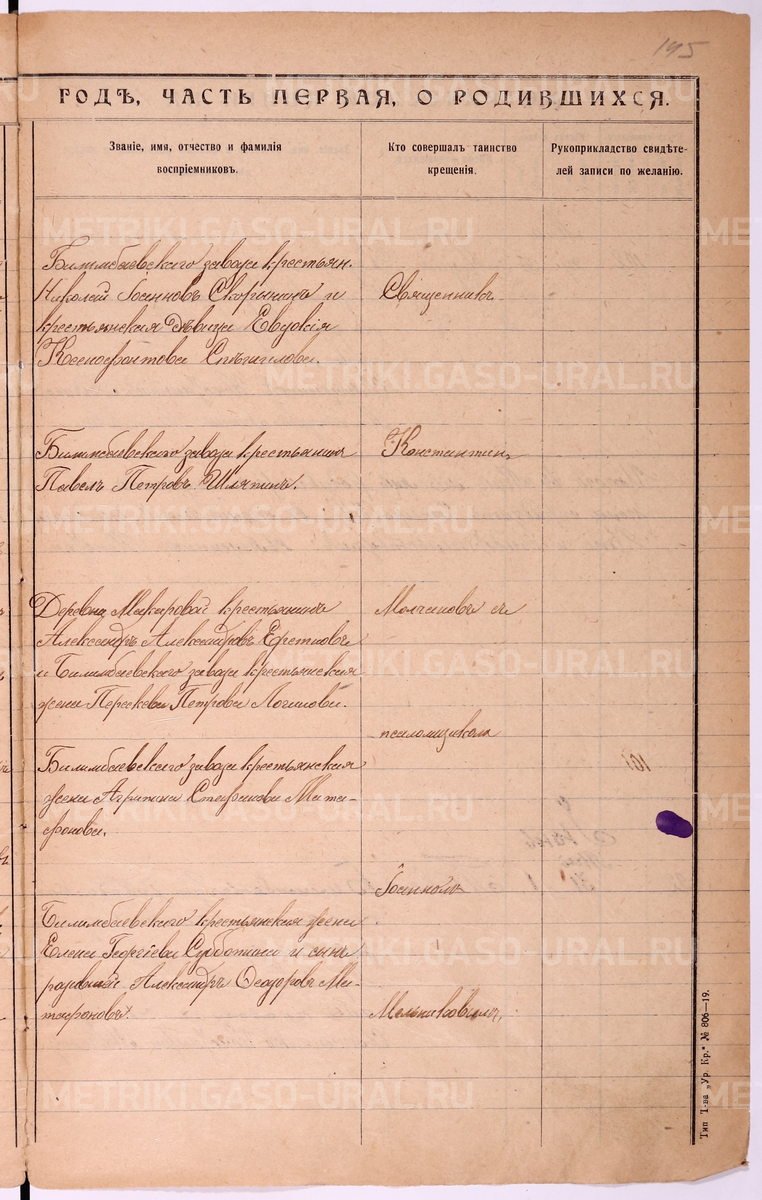 195
ГОДѢ, ЧАСТЬ ПЕРВАЯ, О РОДИВШИХСЯ.
Званіе, имя, отчество и фамилія
воспріемниковъ.
Кто совершалъ таинство
крещенія.
Рукоприкладство свидѣте-
лей записи по желанію.
Билимбаевскаго завода крестьян.
Николай Іоанновъ Скорынинъ и
крестьянская дѣвица Евдокія
Ксенофонтова
Священникъ
Билимбаевскаго завода крестьянинъ
Павелъ Петровъ Шляпинъ.
Константинъ
Деревни Макаровой крестьянинъ
Александръ Александровъ
и Билимбаевскаго завода крестьянская
жена Параскева Петрова Логинова.
Молчановъ съ
псаломщикомъ
Билимбаевскаго завода крестьянская
жена Агрипина Стефанова Мита-
фонова.
Іоанномъ
Билимбаевскаго крестьянская жена
Елена Георгіева Субботина и сынъ
Александръ Ѳеодоровъ Ми-
тафоновъ.
Мельниковымъ.
Тип Т-ва „Ур. Кр." № 806—19.
METRIKI.GASO-URAL.RU